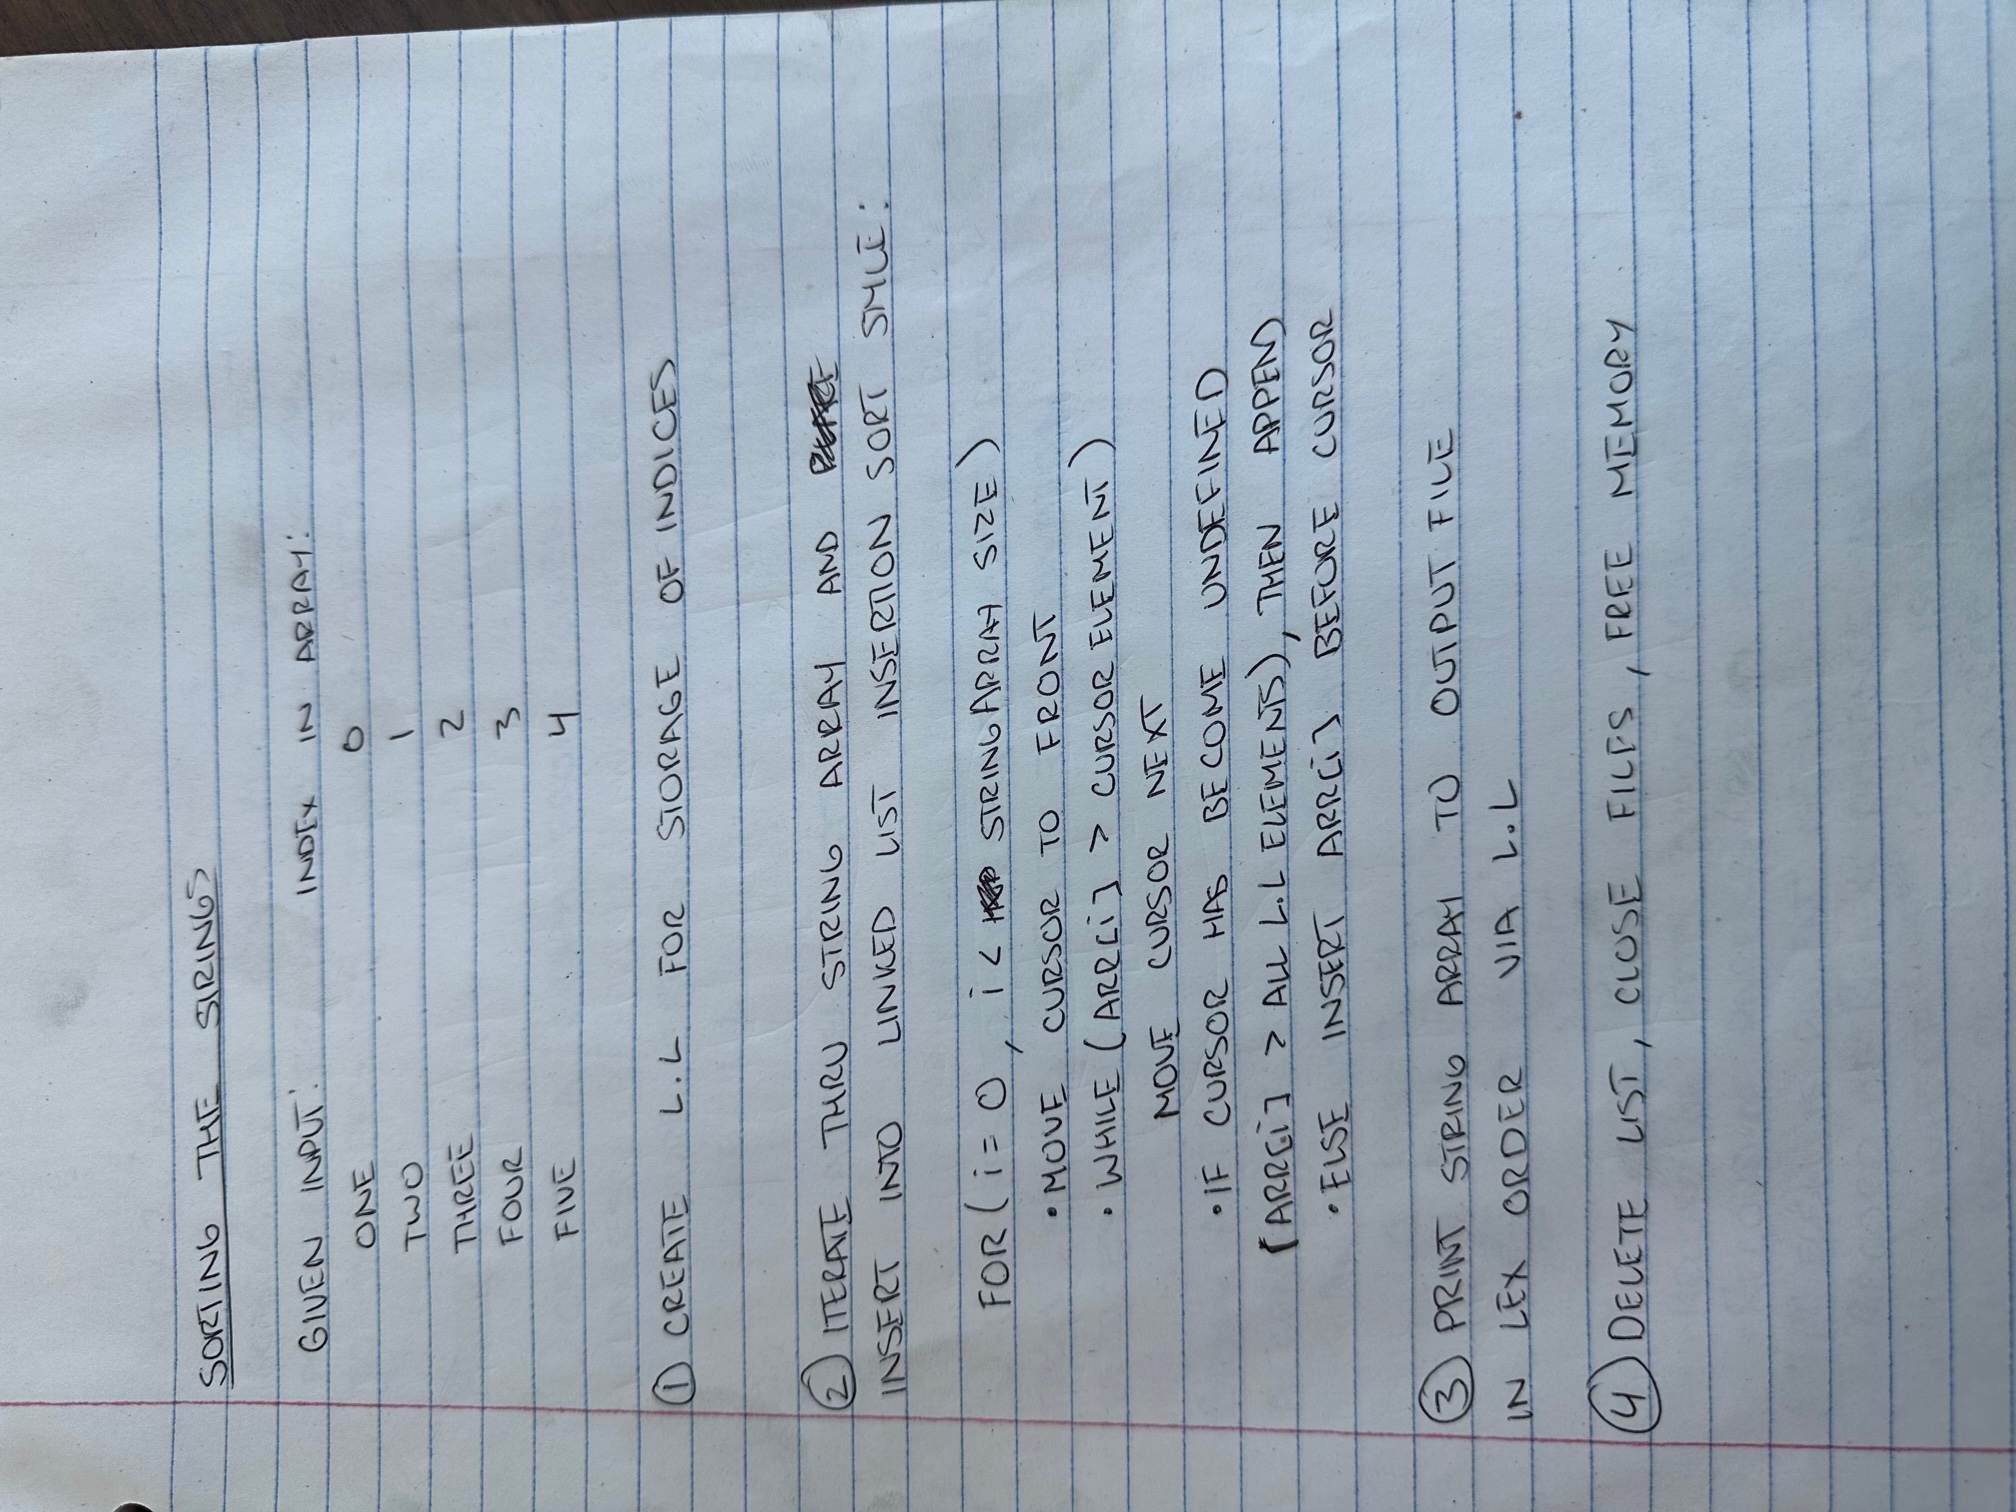 SORTING THE STRINGS
GIVEN INPUT: INDEX IN ARRAY:
ONE 0
TWO 1
THREE 2
FOUR 3
FIVE 4
① CREATE L.L FOR STORAGE OF INDICES
② ITERATE THRU STRING ARRAY AND
INSERT INTO LINKED LIST INSERTION SORT STYLE:
FOR (i = 0, i < STRING ARRAY SIZE)
• MOVE CURSOR TO FRONT
• WHILE (ARR[i] > CURSOR ELEMENT)
MOVE CURSOR NEXT
• IF CURSOR HAS BECOME UNDEFINED
(ARR[i] > ALL L.L ELEMENTS), THEN APPEND
• ELSE INSERT ARR[i] BEFORE CURSOR
③ PRINT STRING ARRAY TO OUTPUT FILE
IN LEX ORDER VIA L.L
④ DELETE LIST, CLOSE FILES, FREE MEMORY